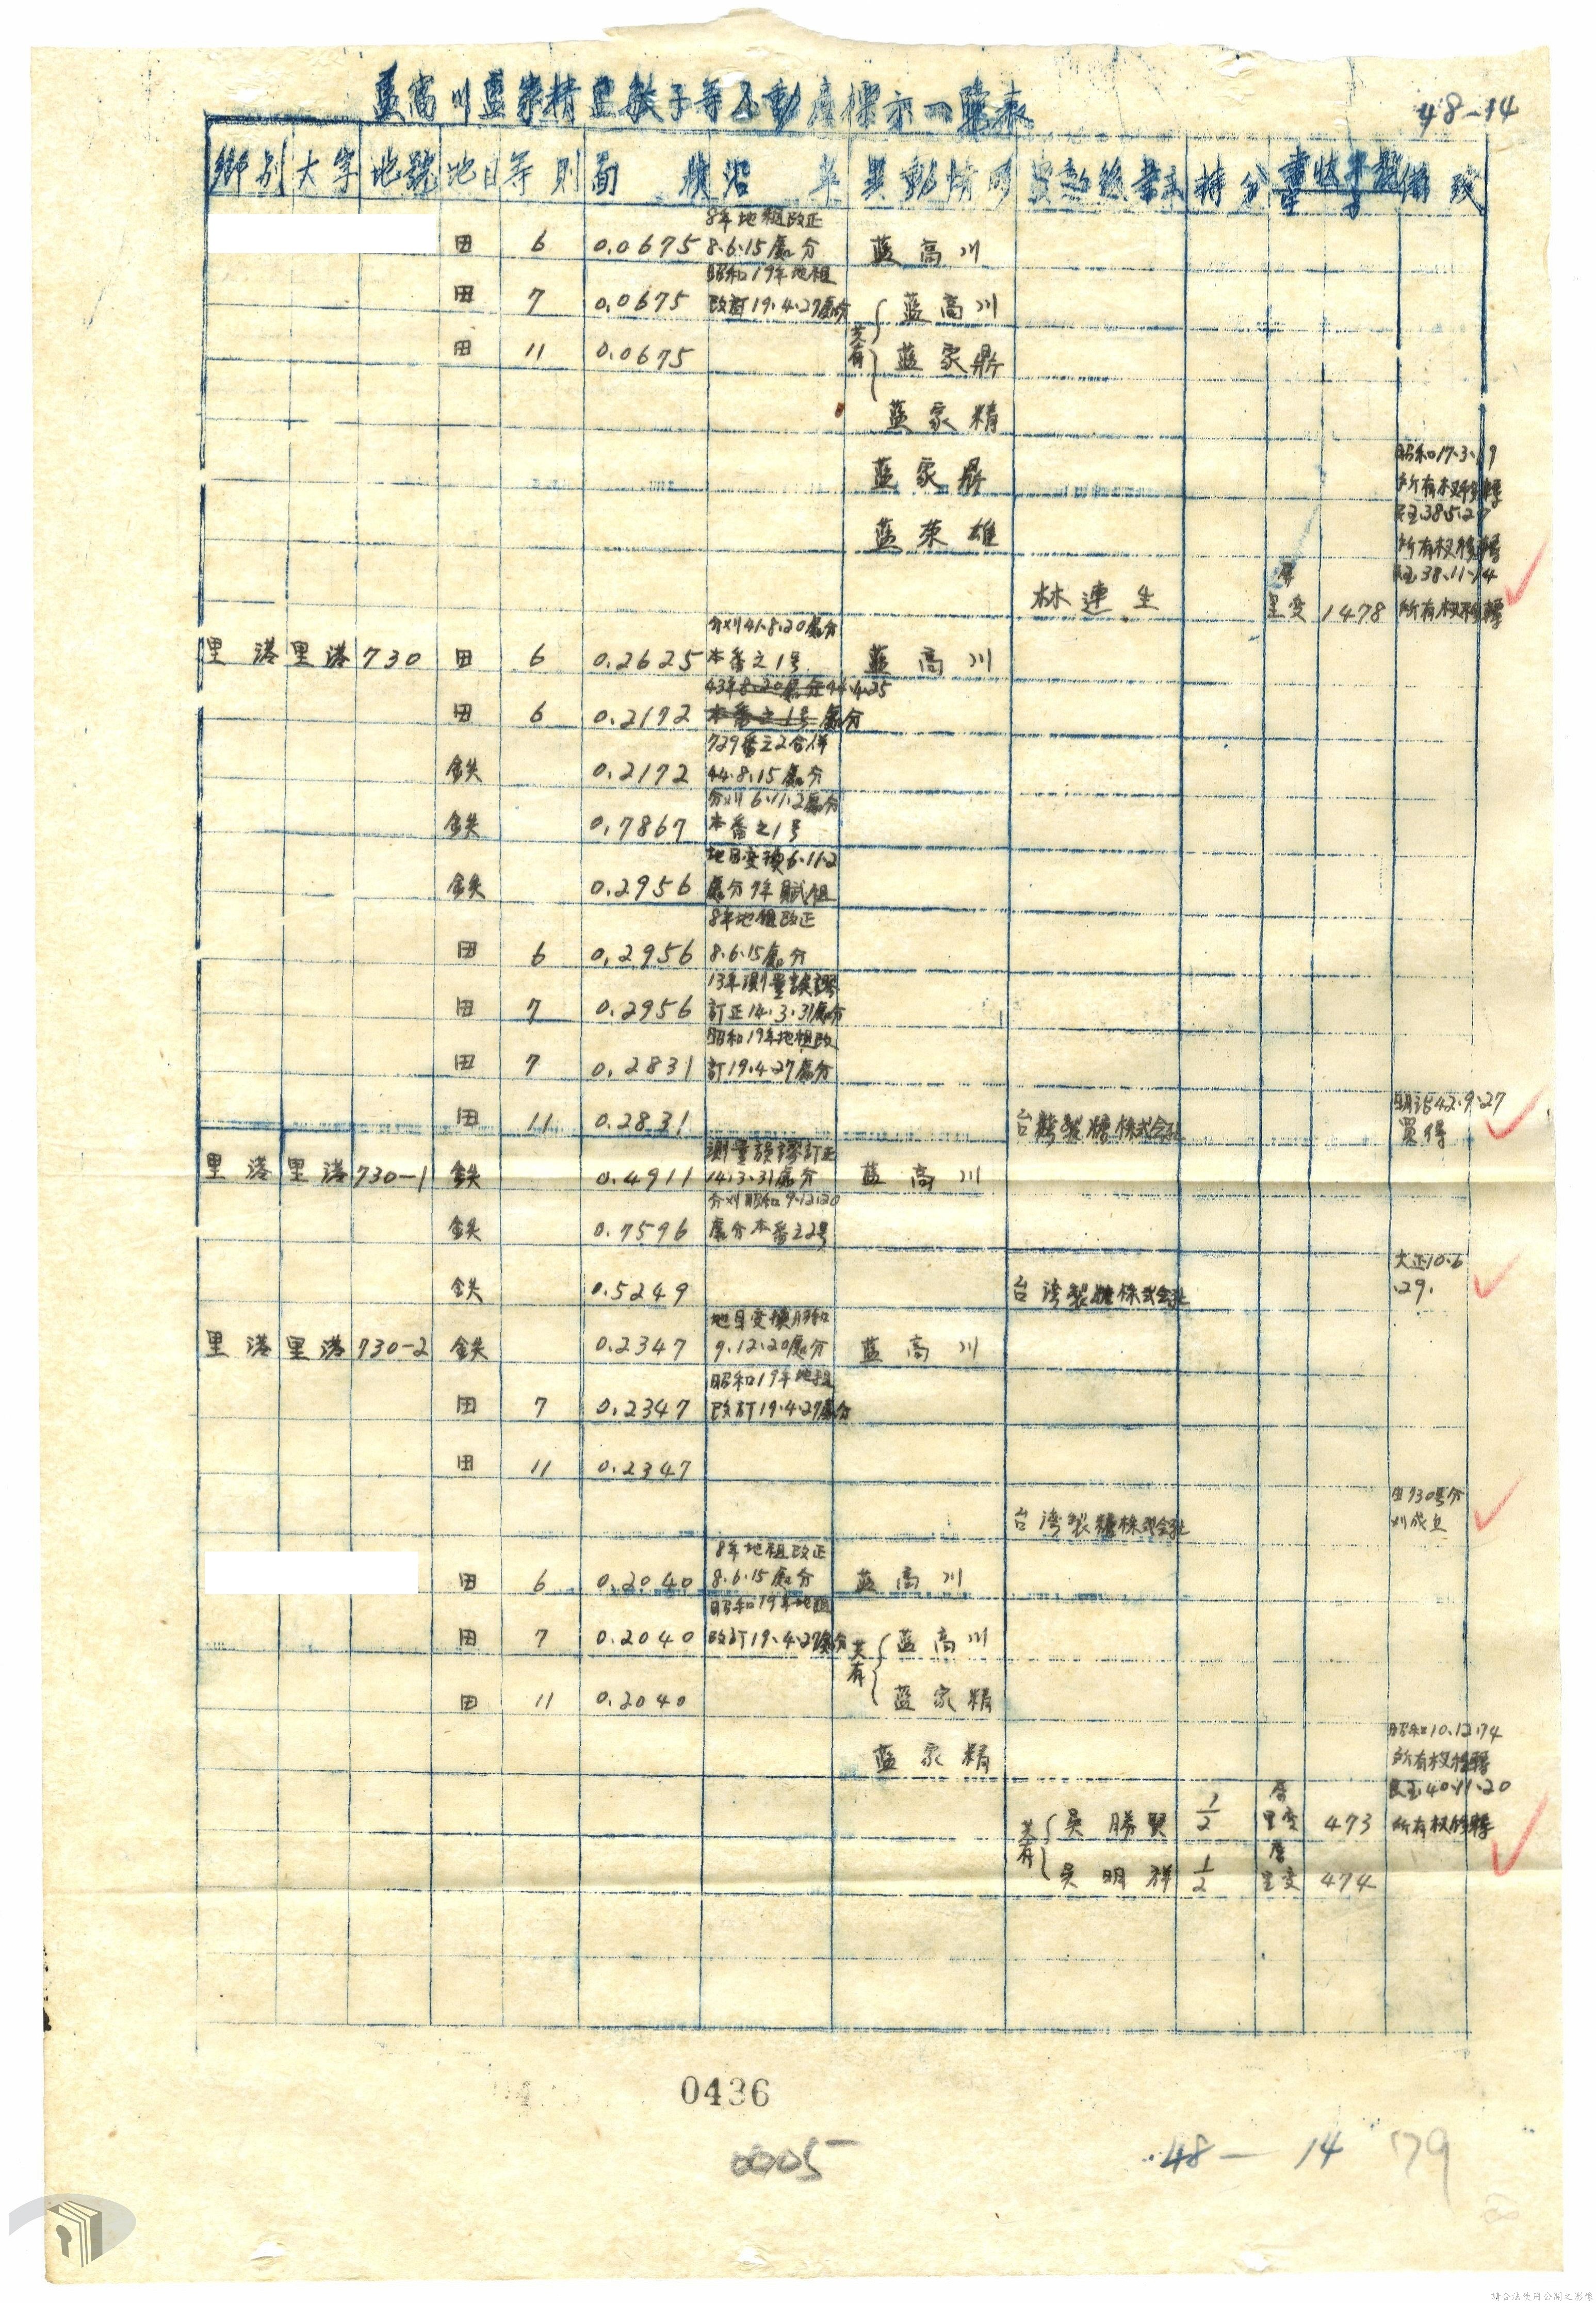 藍高川藍家精藍敏子等不動產標示一覽表
48-14
鄉別 大字 地號 地目 等則 面積 沿革 異動情形 異動後業主 持分 備攷
8年地租改正
田 6 0.0675 8.6.15處分 藍高川
昭和19年地租
田 7 0.0675 改訂19.4.27處分 共有 藍高川
田 11 0.0675 藍家鼎
藍家精
昭和17.3.19
藍家鼎 所有权移轉
民国38.5.27
藍荣雄 所有权移轉
民国38.11.14
林連生 里变 1478 所有权移轉
分刈41.8.20處分
里港 里港 730 田 6 0.2625 本番之1号 藍高川
43年8.20處分 44.4.25
田 6 0.2172 本番之1号 處分
729番之2合併
鉄 0.2172 44.8.15處分
分刈6.11.2處分
鉄 0.7867 本番之1号
地目变换6.11.2
鉄 0.2956 處分7年賦租
8年地租改正
田 6 0.2956 8.6.15處分
13年測量誤謬
田 7 0.2956 訂正14.3.31處分
昭和19年地租改
田 7 0.2831 訂19.4.27處分
明治42.9.27
田 11 0.2831 台灣製糖株式会社 買得
測量誤謬訂正
里港 里港 730-1 鉄 0.4911 14.3.31處分 藍高川
分刈昭和9.12.20
鉄 0.7596 處分本番之2号
大正10.6
鉄 0.5249 台湾製糖株式会社 .29.
地目变換昭和
里港 里港 730-2 鉄 0.2347 9.12.20處分 藍高川
昭和19年地租
田 7 0.2347 改訂19.4.27處分
田 11 0.2347
由730号分
台湾製糖株式会社 刈成立
8年地租改正
田 6 0.2040 8.6.15處分 藍高川
昭和19年地租
田 7 0.2040 改訂19.4.27處分 共有 藍高川
田 11 0.2040 藍家精
昭和10.12.14
藍家精 所有权移轉
民国40.11.20
共有 吳勝賢 1/2 里变 473 所有权移轉
吳明祥 1/2 里变 474
0436
0005
48-14
179
請合法使用公開之影像